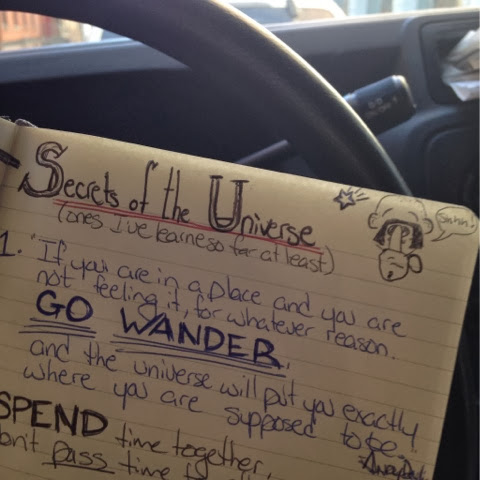 Secrets of the Universe
(ones I've learne so far at least)
Shhhh!
1. "If you are in a place and you are
not feeling it, for whatever reason.
GO WANDER,
and the universe will put you exactly
where you are supposed to be."
SPEND time together,
on't pass time